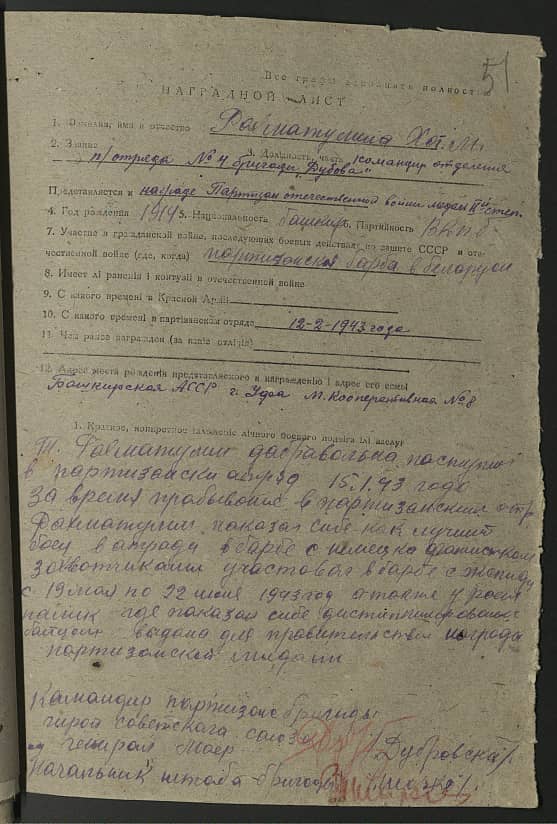 Все графы заполнять полностью
51
НАГРАДНОЙ ЛИСТ
1. Фамилия, имя и отчество Фахматулина Хат. М.
2. Звание 3. Должность, часть командир отделения
п/отряда № 4 бригады "Дубова"
Представляется к награде Партизан отечественной войны медал IIой степ.
4. Год рождения 1914 г. Национальность башкир. Партийность ВКПб
7. Участие в гражданской войне, последующих боевых действиях по защите СССР и оте-
чественной войне (где, когда) партизанская барба в беларуси
8. Имеет лі ранения і контузиі в отечественной войне
9. С какого времени в Красной Арміи
10. С какого времени в партизанском отряде 12-2-1943 года
11. Чем ранее награжден (за какие отлічія)
12. Адрес места рождения представляемого к награждению і адрес его семьі
Башкирская АССР г. Уфа М. Кооперативная № 8
1. Краткое, конкретное ізложение лічного боевого подвіга ілі заслуг
Т. Фахматулин дабравольна паступил
в партизански атряд 15.1.43 года
За время прабывание в партизанским отр.
Фахматулин паказал себе как лучший
боец в атряди в барбе с немецко фашистским
захватчиками участовал в барбе с
с 19 мая по 22 июня 1943 год а также у
где паказал себе дистиплинированым
байцом выдана для правительствен награда
партизанской мидали
Командир партизанс бригады
гироа советского союза
генирал Маёр /Дубровский/
Начальник штаба бригады